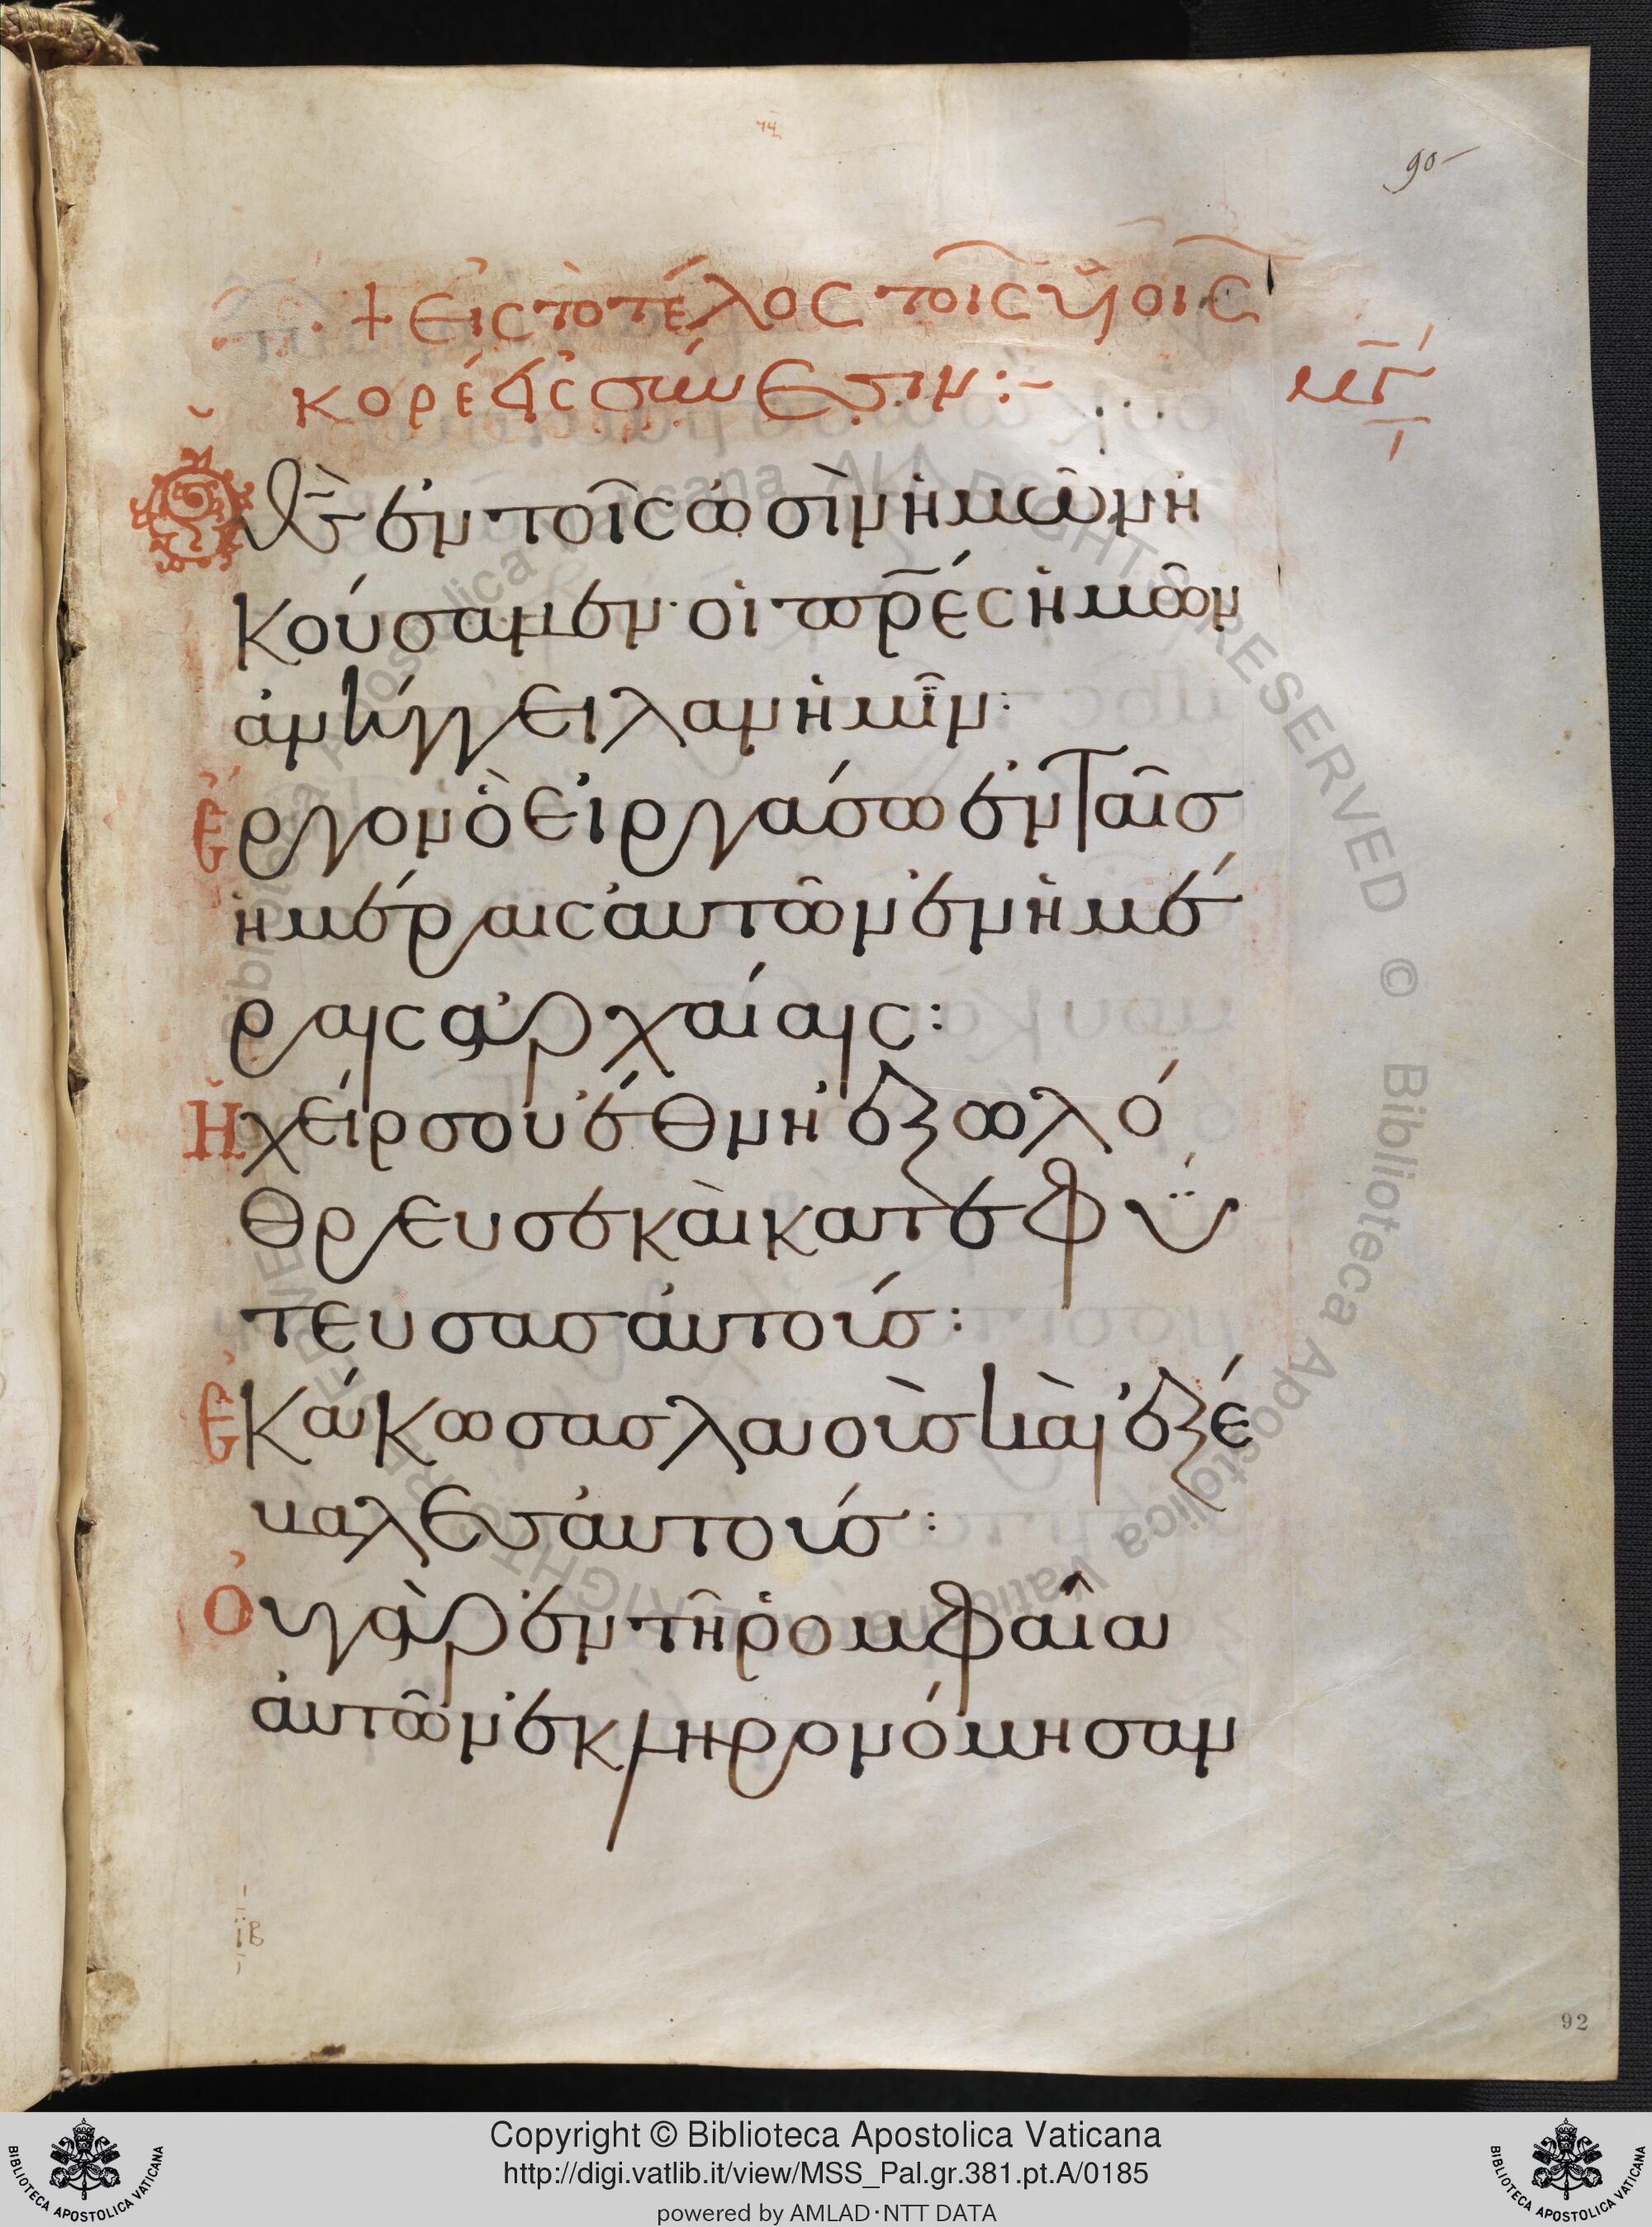 74
90
+ εἰς τὸ τέλος τοῖς υἱοῖς
κορέ εἰς σύνεσιν :~
μγ
Ο θς ἐν τοῖς ὠσὶν ἡμῶν ἠ
κούσαμεν· οἱ πρες ἡμῶν
ἀνήγγειλαν ἡμῖν:
ἔργον ὃ εἰργάσω ἐν ταῖς
ἡμέραις αὐτῶν ἐν ἡμέ
ραις ἀρχαίαις:
Ἡ χείρ σου ἔθνη ἐξωλό
θρευσε καὶ κατεφύ
τευσας αὐτούς:
Ἐκάκωσας λαοὺς καὶ ἐξέ
βαλες αὐτούς:
Οὐ γὰρ ἐν τῇ ῥομφαίᾳ
αὐτῶν ἐκληρονόμησαν
ιβ
92
Copyright © Biblioteca Apostolica Vaticana
http://digi.vatlib.it/view/MSS_Pal.gr.381.pt.A/0185
powered by AMLAD·NTT DATA
BIBLIOTECA APOSTOLICA VATICANA
BIBLIOTECA APOSTOLICA VATICANA